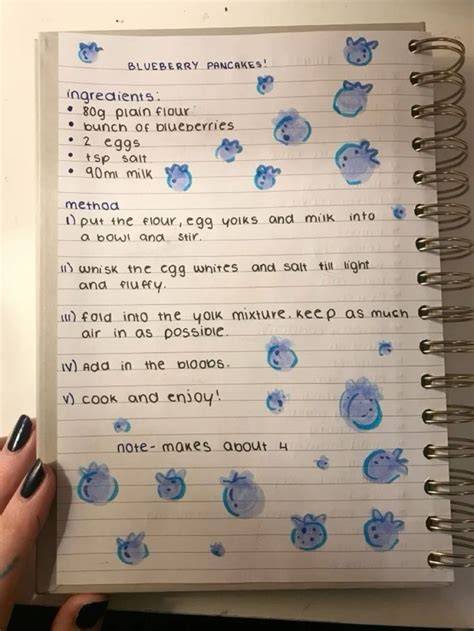 BLUEBERRY PANCAKES!
ingredients:
• 80g plain flour
• bunch of blueberries
• 2 eggs
• tsp salt
• 90ml milk
method
I) put the flour, egg yolks and milk into
a bowl and stir.
II) whisk the egg whites and salt till light
and fluffy.
III) fold into the yolk mixture. keep as much
air in as possible.
IV) Add in the bloobs.
V) cook and enjoy!
note- makes about 4